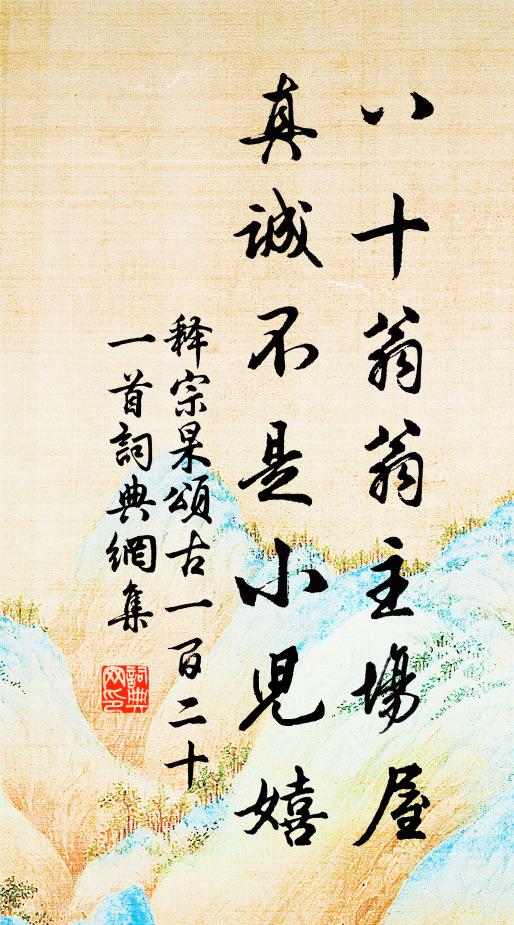 八十翁翁主場屋
真誠不是小兒嬉
释宗杲頌古一百二十
一首詞典網集
詞典網印